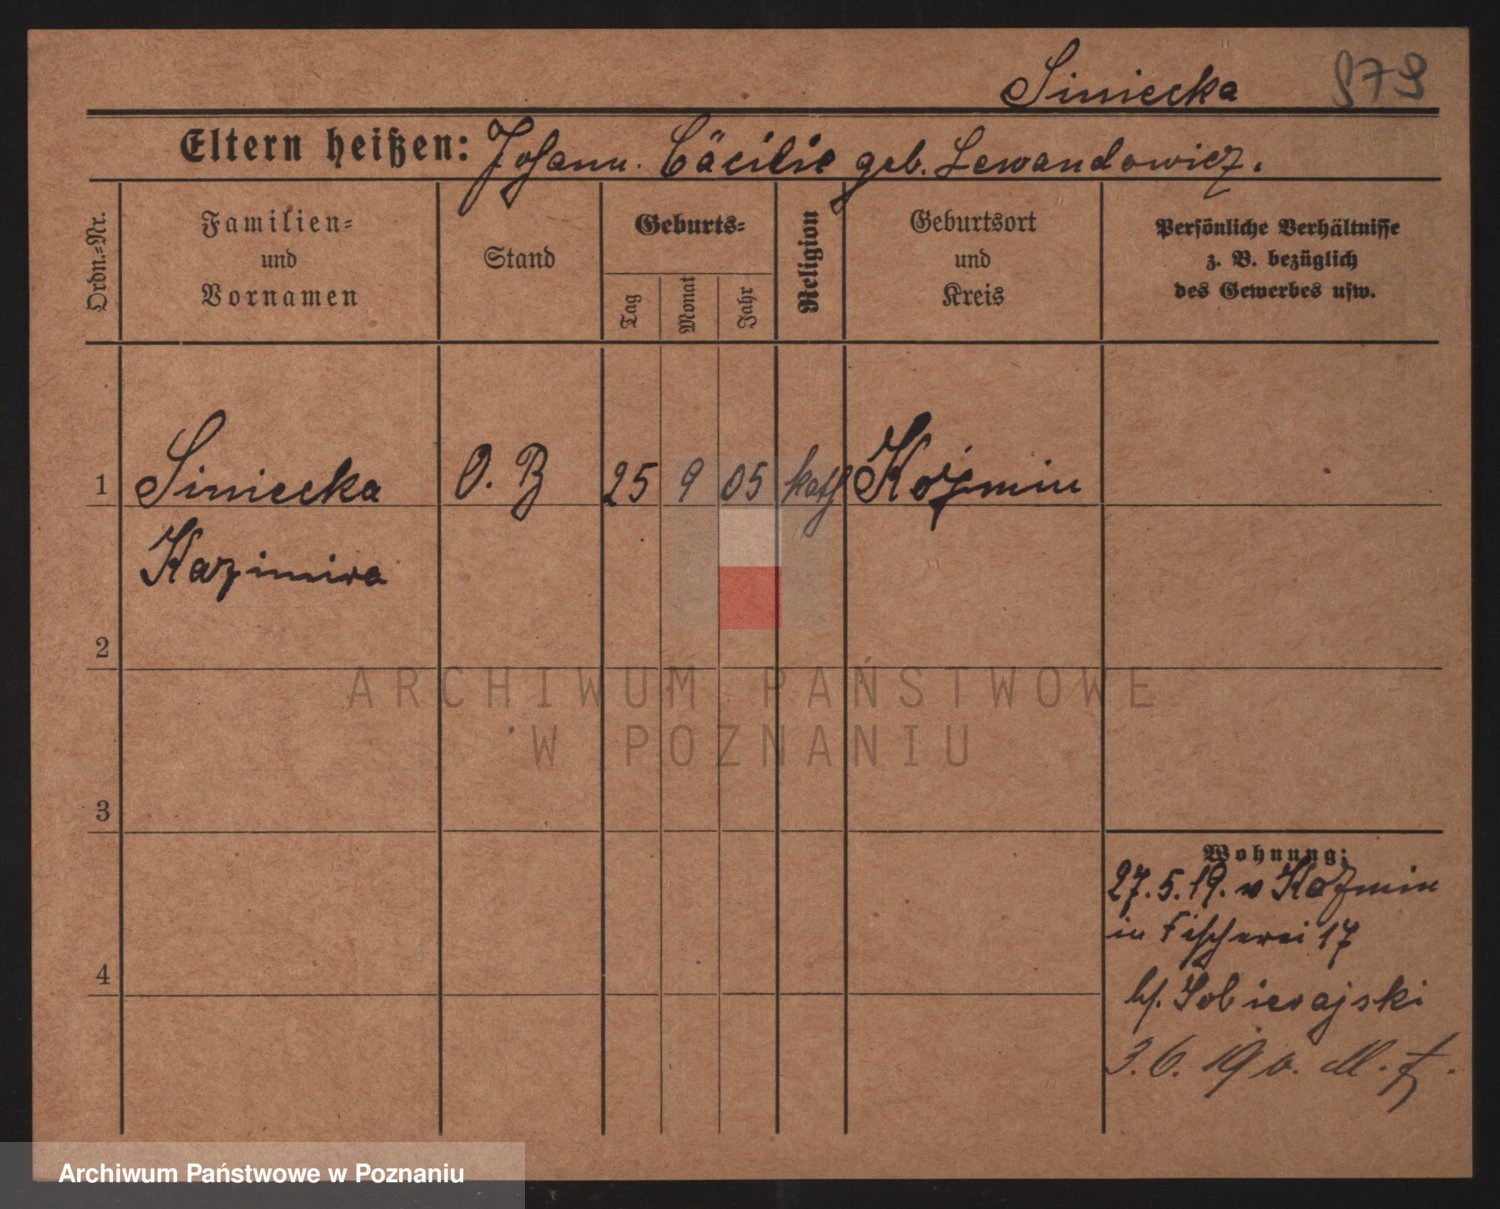 Siniecka 979
Eltern heißen: Johann. Cäcilie geb. Lewandowicz.
Ordn.-Nr.
Familien-
und
Vornamen
Stand
Geburts-
Tag
Monat
Jahr
Religion
Geburtsort
und
Kreis
Persönliche Verhältnisse
z. B. bezüglich
des Gewerbes usw.
1 Siniecka O. B 25 9 05 kath Kozmin
Kazimira
2
3
4
Wohnung:
27.5.19. v Kozmin
in Fischerei 17
bf. Sobierajski
3.6.19
ARCHIWUM PAŃSTWOWE
W POZNANIU
Archiwum Państwowe w Poznaniu